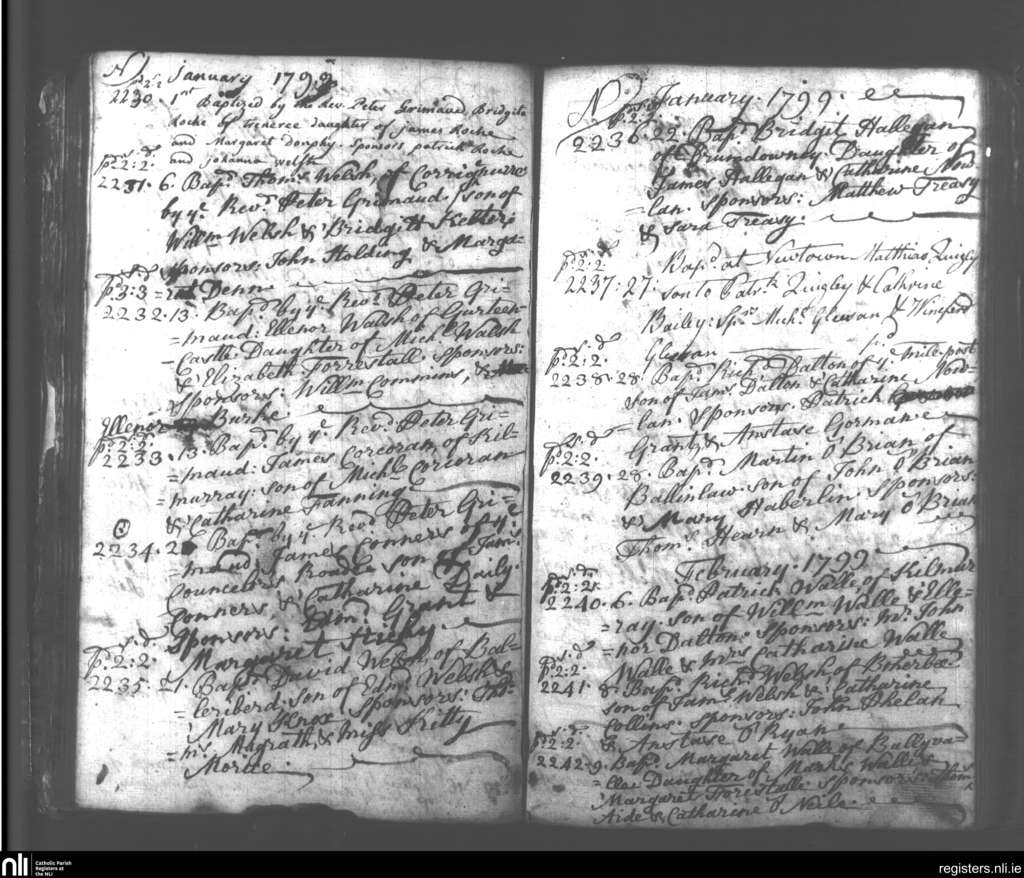 No. January 1799
2230 1st Baptized by the Rev. Peter Grimaud Bridgita
Roche of daughter of James Roche
and Margaret Donphy. Sponsors patrick Roche
and Johanna Welsh
pd 2:2.
2231. 6. Bapd. Thoms. Welsh of
by ye. Revd. Peter Grimaud. son of
Willm Welsh & Bridgitt
Sponsors: John Holding & Marga=
s. d
pd 3:3 =ret Denn
2232. 13. Bapd. by ye. Revd. Peter Gri=
=maud: Ellenor Walsh of Gurteen=
=Castle. Daughter of Michl. Walsh
& Elizabeth Forrestall. Sponsors:
Sponsors: Willm Commins, &
Ellenor Burke.
pd. 3:3.
2233. 13. Bapd. by ye. Revd. Peter Gri=
=maud: James Corcoran of Kil=
=murray: son of Michl. Corcoran
& Catharine Fanning
2234. Bapd. by ye. Revd. Peter Gri=
=maud; James Conners of ye.
Councelrs. son of Jams.
Conners & Catharine Daily.
Sponsors: Edmd. Grant &
Margaret Hicky.
s. d
p. 2:2.
2235: 21. Bapd. David Welsh, of Bal=
=leriberd. son of Edmd. Welsh &
Mary Knox Sponsors:
Magrath, & Miss Kitty
Morice.
No. January. 1799.
p. 2:2.
2236. 29. Bapd. Bridgit Hallegan
of Drumdowney Daughter of
James Hallegan & Catharine Now=
=lan. Sponsors: Matthew Treasy
& Sara Treasy.
pd. 2:2 Bapd. at Newtown Matthias Quigly
2237: 27: son to Patrk. Quigley & Cathrine
Bailey: Sprs. Michl. Gleesan & Winefred
Gleesan
s. d
p. 2:2.
2238. 28. Bapd. Richd. Dalton of ye. mile post
son of Jams. Dalton & Catharine Now=
=lan. Sponsors. Patrick
Grant, & Anstase Gorman.
s. d
p. 2:2.
2239. 28. Bapd. Martin O'Brian of
Ballinlaw. son of John O'Brian
& Mary Haberlin. Sponsors:
Thoms. Hearn & Mary O'Brian
February. 1799
s. d
p. 2:2.
2240. 6. Bapd. Patrick Walle of Kilmur
=ray. son of Willm Walle & Elle=
=nor Dalton. Sponsors: Mr. John
Walle & Mrs Catharine Walle
s. d
p. 2:2.
2241. 8. Bapd. Richd. Welsh of
son of Jams. Welsh & Catharine
Collins. Sponsors: John Phelan
& Anstase O'Ryan
s. d
p. 2:2.
2242. 9. Bapd. Margaret Walle of Ballyva=
Daughter of Marks Walle &
Margaret Forestalle Sponsors: Thoms.
Aide & Catharine O'Neile.
nli Catholic Parish
Registers at
the NLI
registers.nli.ie